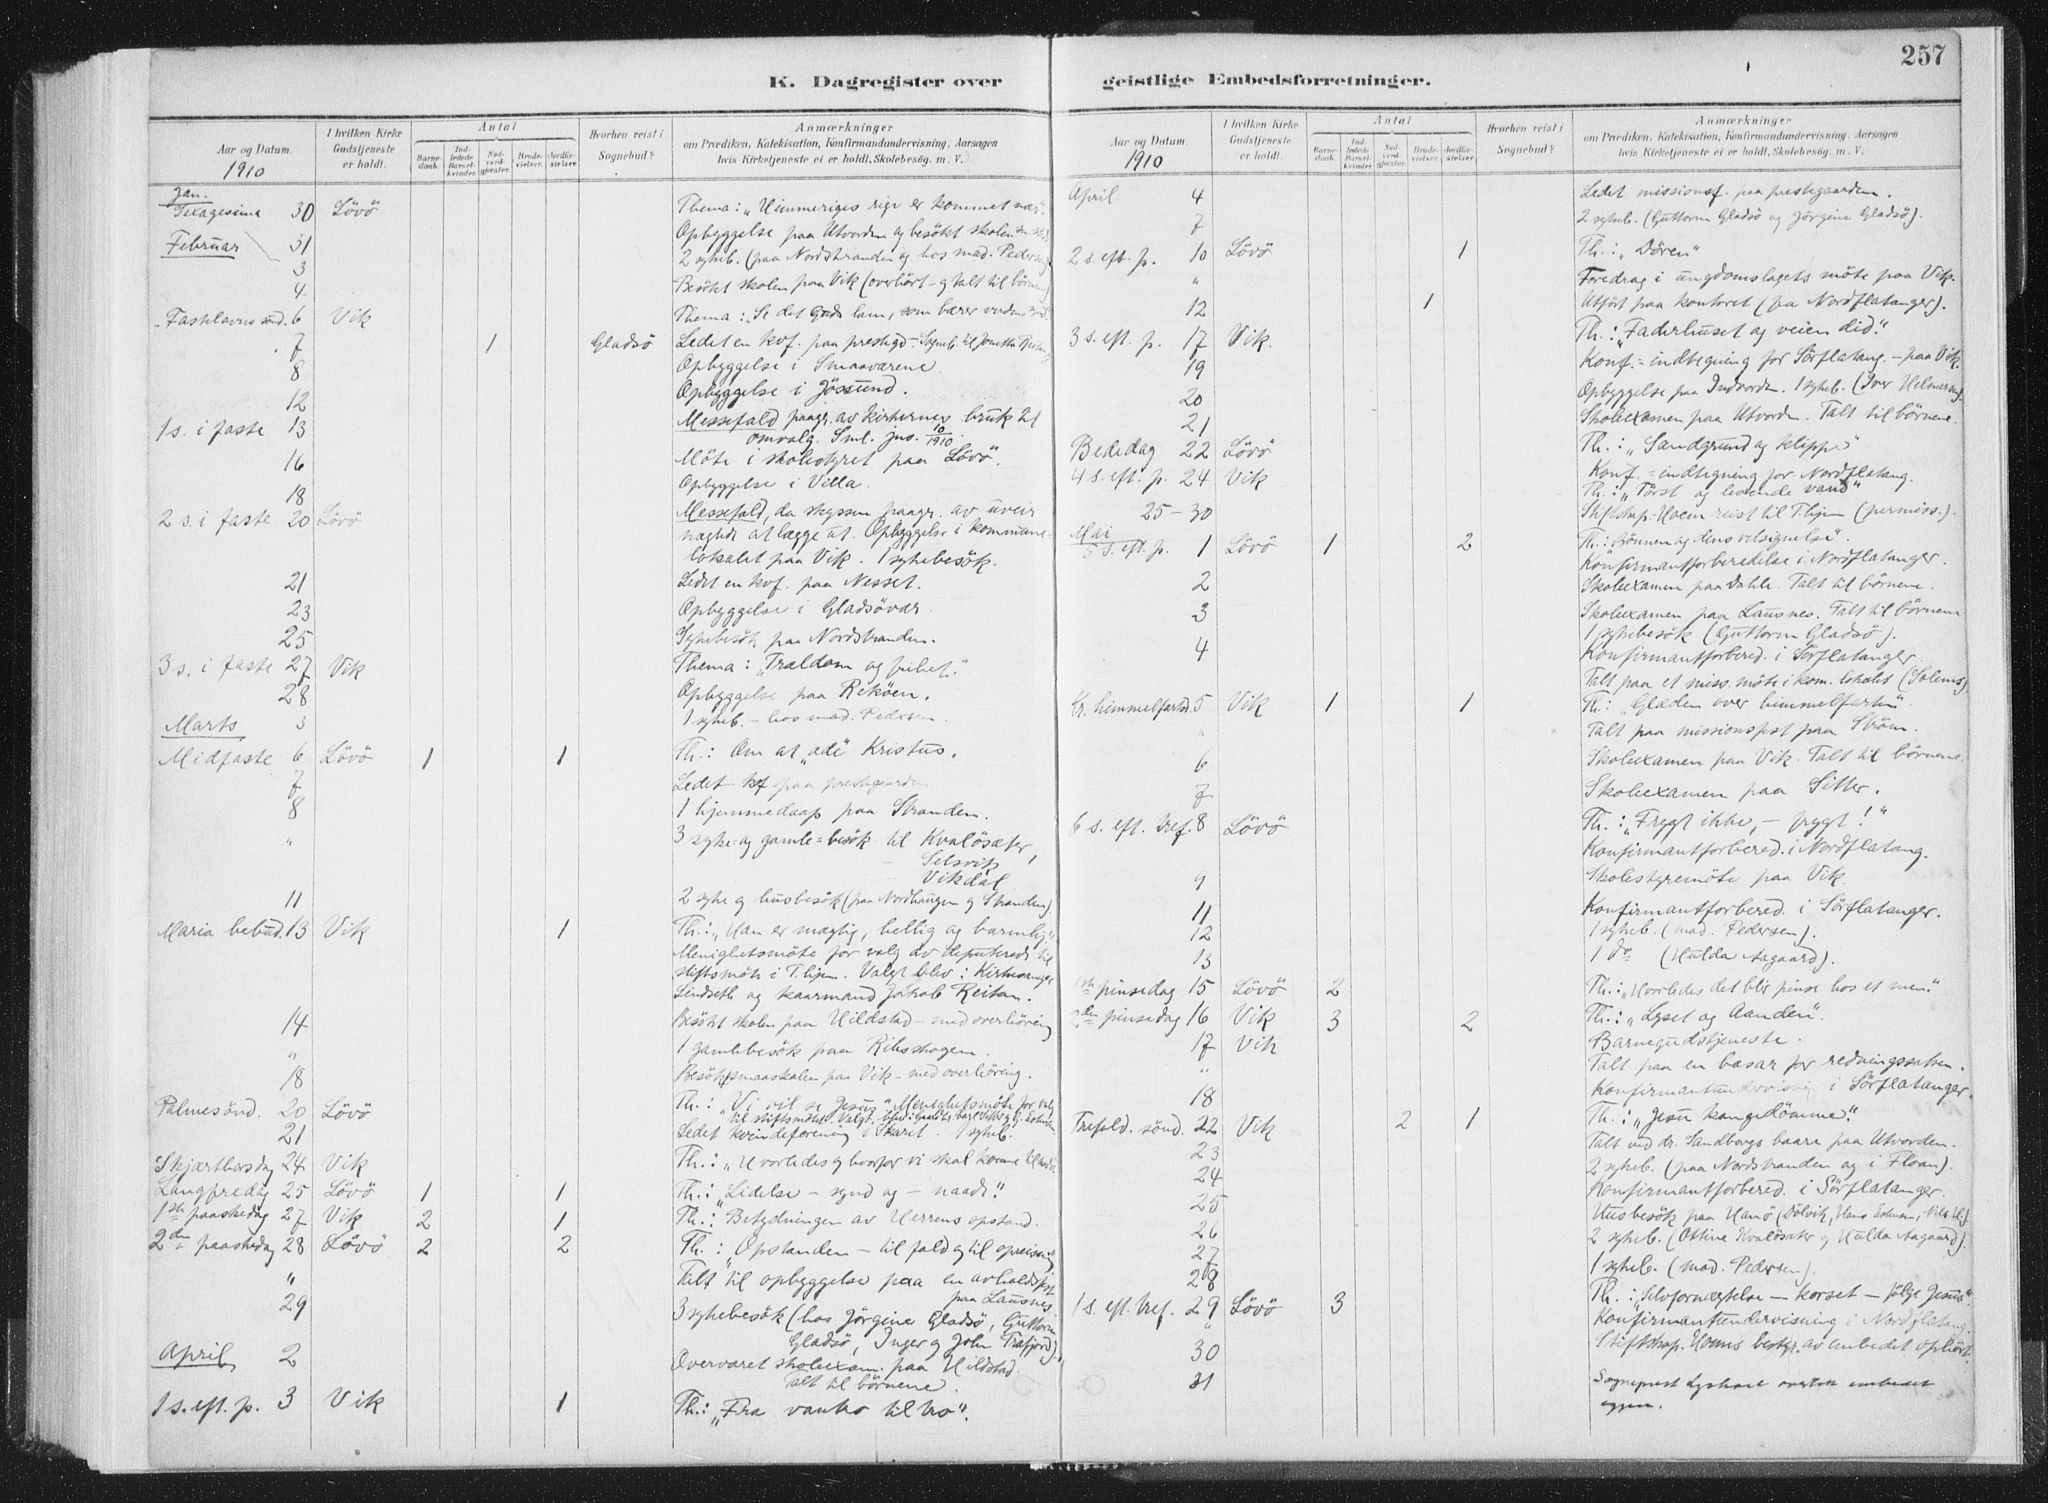 257
K. Dagregister over geistlige Embedsforretninger.
Aar og Datum. 1910 | I hvilken Kirke Gudstjeneste er holdt. | Antal | Barnedaab. | Indledede Barselkvinder. | Nadverdgjester. | Brudevielser. | Jordfæstelser | Hvorhen reist i Sognebud? | Anmærkninger om Prædiken, Katekisation, Konfirmandundervisning, Aarsagen hvis Kirketjeneste ei er holdt, Skolebesøg. m. V.
Jan.
Sexagesima 30 Lövö Thema: "Himmeriges rige er kommet nær".
31 Opbyggelse paa Utvorden og besökt skolen
Februar 3 2 sykeb. (paa Nordstranden og hos mad. Pedersen)
4 Besökt skolen paa Vik (overhört og talt til börnene)
Fastelavns sönd. 6 Vik Thema: "Se det Guds lam, som bærer verdens synd"
7 1 Gladsö Ledet en kvf. paa prestegd.
8 Opbyggelse i Smaaværene.
12 Opbyggelse i Jössund.
1 s. i faste 13 Messefald paagr. av kirkernes bruk til
omvalg. Sml. jus. 10/1910.
16 Möte i skolestyret paa Lövö.
18 Opbyggelse i Villa.
2 s. i faste 20 Lövö Messefald, da skyssen paagr. av uveir
nægtede at lægge ut. Opbyggelse i kommune-
lokalet paa Vik. 1 sykebesök.
21 Ledet en kvf. paa Nesset.
23 Opbyggelse i Gladsövær.
25 Sykebesök paa Nordstranden.
3 s. i faste 27 Vik Thema: "Trældom og frihet".
28 Opbyggelse paa Reköen.
Marts 3 1 sykeb. – hos mad. Pedersen.
Midfaste 6 Lövö 1 1 Th.: Om at "æde" Kristus.
7 Ledet kvf paa prestegaarden
8 1 hjemmedaap paa Stranden.
" 3 syke- og gamle-besök til Kvalösæter,
Selsvik
Vikdal
11 2 syke og husbesök (paa Nordhaugen og Stranden).
Maria bebud. 13 Vik 1 Th.: "Han er mægtig, hellig og barmhj."
Menighetsmöte for valg av deputerede til
stiftsmöte i T.hjem. Valgt blev: Kirkesanger
Lindseth og kaarmand Jakob Reitan.
14 Besökt skolen paa Hildstad – med overhöring
" 1 gamlebesök paa Ribsskogen.
18 Besökt smaaskolen paa Vik – med overhöring.
Palmesönd. 20 Lövö Th.: "Vi vil se Jesus" Menighetsmöte for valg
til stiftsmötet.
21 Ledet kvindeforening i Skaret. 1 sykeb.
Skjærthorsdag 24 Vik Th.: "Hvorledes og hvorfor vi skal komme
Langfredag 25 Lövö 1 1 Th.: "Lidelse – synd og – naade".
1ste paaskedag 27 Vik 2 1 Th.: Betydningen av Herrens opstand.
2den paaskedag 28 Lövö 2 2 Th.: "Opstanden – til fald og til opreisn."
" Talt til opbyggelse paa en avholdsfest
paa Lausnes.
29 3 sykebesök (hos Jörgine Gladsö, Guttorm
Gladsö, Inger og John Træfjord).
April 2 Overværet skoleexam. paa Hildstad.
Talt til börnene.
1 s. eft. p. 3 Vik 1 Th.: "Fra vantro til tro".
Aar og Datum. 1910 | I hvilken Kirke Gudstjeneste er holdt. | Antal | Barnedaab. | Indledede Barselkvinder. | Nadverdgjester. | Brudevielser. | Jordfæstelser | Hvorhen reist i Sognebud? | Anmærkninger om Prædiken, Katekisation, Konfirmandundervisning, Aarsagen hvis Kirketjeneste ei er holdt, Skolebesøg. m. V.
April 4 Ledet missionsf. paa prestegaarden.
7 2 sykeb. (Guttorm Gladsö og Jörgine Gladsö).
2 s. eft. p. 10 Lövö 1 Th.: "Dören"
" Foredrag i ungdomslagets möte paa Vik.
12 1 Utfört paa kontoret (fra Nordflatanger).
3 s. eft. p. 17 Vik. Th.: "Faderhuset og veien did".
19 Konf.-indtegning for Sörflatang. – paa Vik.
20 Opbyggelse paa Indvorden. 1 sykeb.
21 Skoleexamen paa Utvorden. Talt til börnene.
Bededag 22 Lövö Th.: "Sandgrund og klippe"
Konf.-indtegning for Nordflatang.
4 s. eft. p. 24 Vik Th.: "Törst og levende vand"
25 – 30 Stiftskap. Hoem reist til T.hjem (permiss.).
Mai
5 s. eft. p. 1 Lövö 1 2 Th.: "Bönnen og dens velsignelse".
Konfirmantforberedelse i Nordflatanger.
2 Skoleexamen paa Dahle. Talt til börnene.
3 Skoleexamen paa Lausnes. Talt til börnene
1 sykebesök (Guttorm Gladsö).
4 Konfirmantforbered. i Sörflatanger.
Talt paa et miss. möte i kom. lokalet (Solems).
Kr. himmelfartsd. 5 Vik 1 1 Th.: "Glæden over himmelfarten".
" Talt paa missionsfest paa Ström.
6 Skoleexamen paa Vik. Talt til börnene.
7 Skoleexamen paa Sitter.
6 s. eft. tref. 8 Lövö Th.: "Frygt ikke, – frygt!"
Konfirmantforbered. i Nordflatang.
9 Skolestyremöte paa Vik.
11 Konfirmantforbered. i Sörflatanger.
12 1 sykeb. (mad. Pedersen).
13 1 do (Hulda Aagaard).
1ste pinsedag 15 Lövö 2 Th.: "Hvorledes det blir pinse hos et men."
2den pinsedag 16 Vik 3 2 Th.: "Lyset og Aanden".
17 Vik Barnegudstjeneste.
" Talt paa en basar for redningssaken.
18 Konfirmantundervisning i Sörflatanger
Trefold. sönd. 22 Vik 2 1 Th.: "Jesu kongedömme".
23 Talt ved dr. Sandborgs baare paa Utvorden.
24 2 sykeb. (paa Nordstranden og i Floan).
25 Konfirmantforbered. i Sörflatanger.
26 Husbesök paa Hanö
27 2 sykeb. (Ottine Kvalösæter og Hulda Aagaard).
28 1 sykeb. (mad. Pedersen).
1 s. eft. tref. 29 Lövö 3 Th.: "Selvfornægtelse – korset – fölge Jesus".
" Konfirmantundervisning i Nordflatang.
30 Stiftskap. Hoems bestyr. av embedet ophört.
31 Sogneprest overtok embedet
igjen.